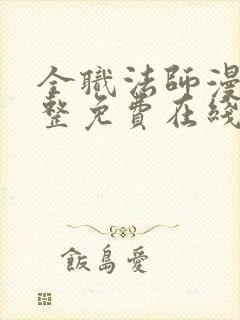 全職法師漫
整免費在綫
飯島愛